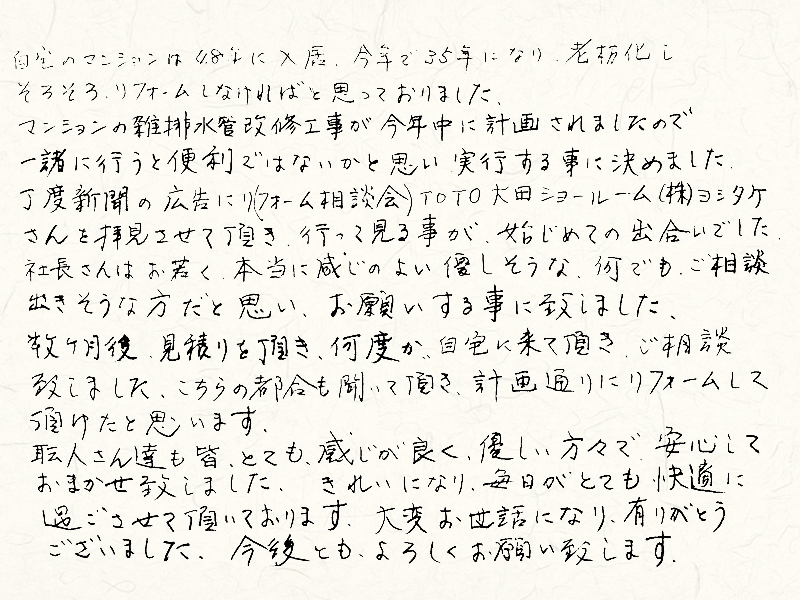 自宅のマンションは48年に入居、今年で35年になり、老朽化し
そろそろ、リフォームしなければと思っておりました、
マンションの雑排水管改修工事が今年中に計画されましたので
一諸に行うと便利ではないかと思い実行する事に決めました。
丁度新聞の広告に(リフォーム相談会)TOTO大田ショールーム(株)ヨシタケ
さんを拝見させて頂き、行って見る事が、始じめての出合いでした。
社長さんはお若く、本当に感じのよい優しそうな、何でも、ご相談
出きそうな方だと思い、お願いする事に致しました、
数ヶ月後、見積りを頂き、何度か、自宅に来て頂き、ご相談
致しました、こちらの都合も聞いて頂き、計画通りにリフォームして
頂けたと思います。
職人さん達も皆、とても、感じが良く、優しい方々で、安心して
おまかせ致しました、 きれいになり、毎日がとても快適に
過ごさせて頂いております。大変お世話になり、有りがとう
ございました、 今後とも、よろしくお願い致します。